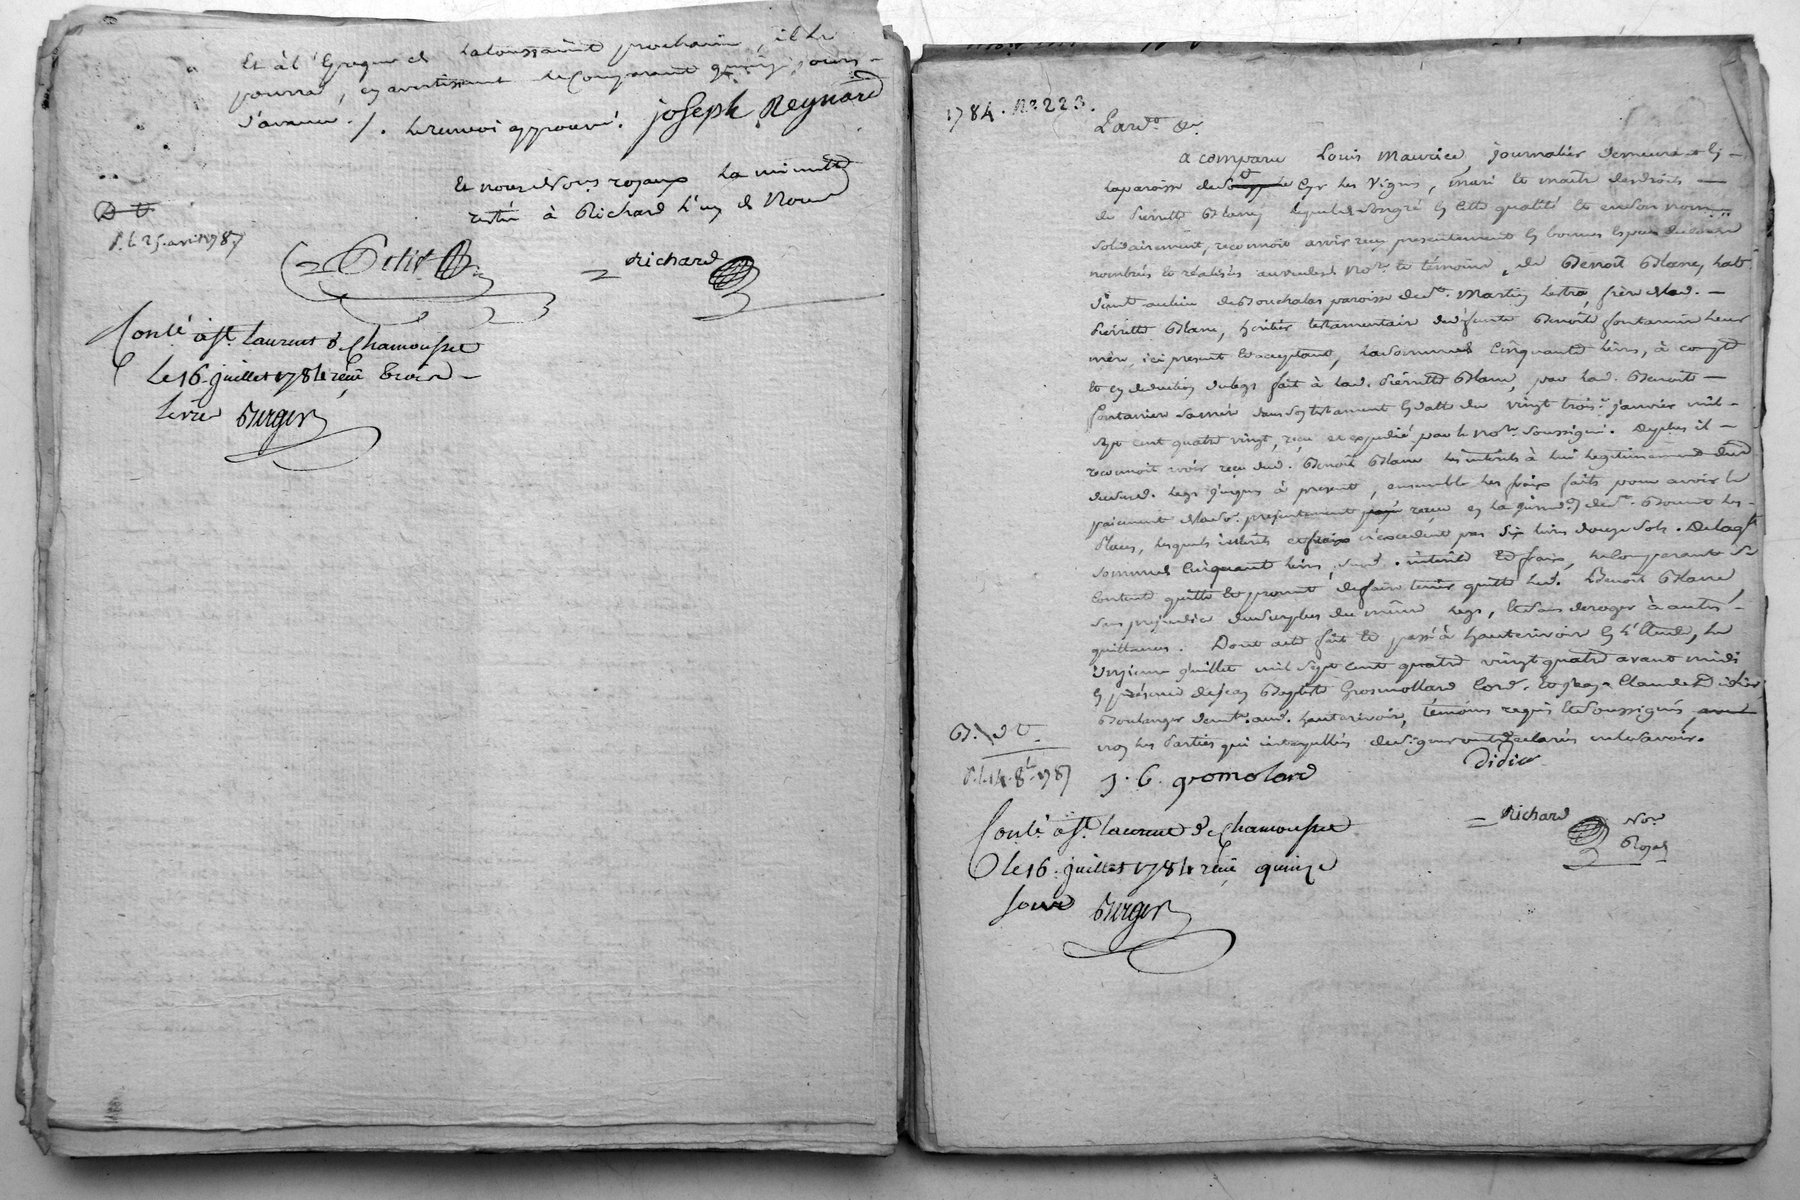 Et à l'Epoque de la toussaint prochain, il le
pourra, en avertissant le Comparant quinze jours
d'avance ./. le renvoi approuvé. joseph Reynard
Et nous dNo.rs royaux la minutte
restée à Richard l'un de Nous
D. U.
P. l. 25. avril 1787
Petit
Richard
Conlé à St. Laurent d. Chamousset
Le 16. juillet 1784 reçu trois
livres Berger
1784. No. 223.
Pardt. &c.
a comparu Louis Maurice, journalier demeurant en
la paroisse de St Cyr les Vignes, mari et maitre des droits
de Pierrette Blanc, lequel de son gré en cette qualité et en son nom
solidairement, reconnoit avoir reçu présentement en bonnes espèces de cours
nombrés et réalisés au vu des Nore. et témoins, de Benoît Blanc, habt.
paroisse de St. Martin Lestra, frère de lad.
Pierrette Blanc, héritier testamentaire de défunte Benoîte fontanier leur
mère, ici présent et acceptant, la somme de Cinquante livres, à compte
et en déduction du legs fait à lad. Pierrette Blanc, par lad. Benoîte
fontanier sa mère dans son testament en datte du vingt trois. janvier mil
sept cent quatre vingt, reçu et expédié par le nore. soussigné. De plus il
reconnoit avoir reçu dud. Benoît Blanc les intérêts à lui légitimement dus
dud. legs jusques à present, ensemble les frais faits pour avoir le
paiement de lad. présentement payé reçue en la jurisdon. de St. Bonnet les
Places, lesquels intérêts et frais n'excedent pas six livres douze sols. De laqle.
somme de Cinquante livres, intérêts et frais, le Comparant se
contente quitte et promet de faire tenir quitte led. Benoît Blanc,
sans préjudice du surplus du même legs, et sans déroger à autres
quittances. Dont acte fait et passé à hauterivoire en l'Etude, le
onzieme juillet mil sept cent quatre vingt quatre avant midi
en présence de jean Baptiste Grosmollard Cord. et jean Claude Didier,
Boulanger demt. aud. hauterivoire, témoins requis et soussignés, avec
non les Parties qui interpellées de signer ont déclaré ne le savoir.
B. D. U.
P. l. 14. 8bre. 1787
j. b. gromolard
Didier
Richard
Nore.
Royal
Conlé à St. Laurent d. Chamousset
Le 16. juillet 1784 reçu quinze
sous Berger